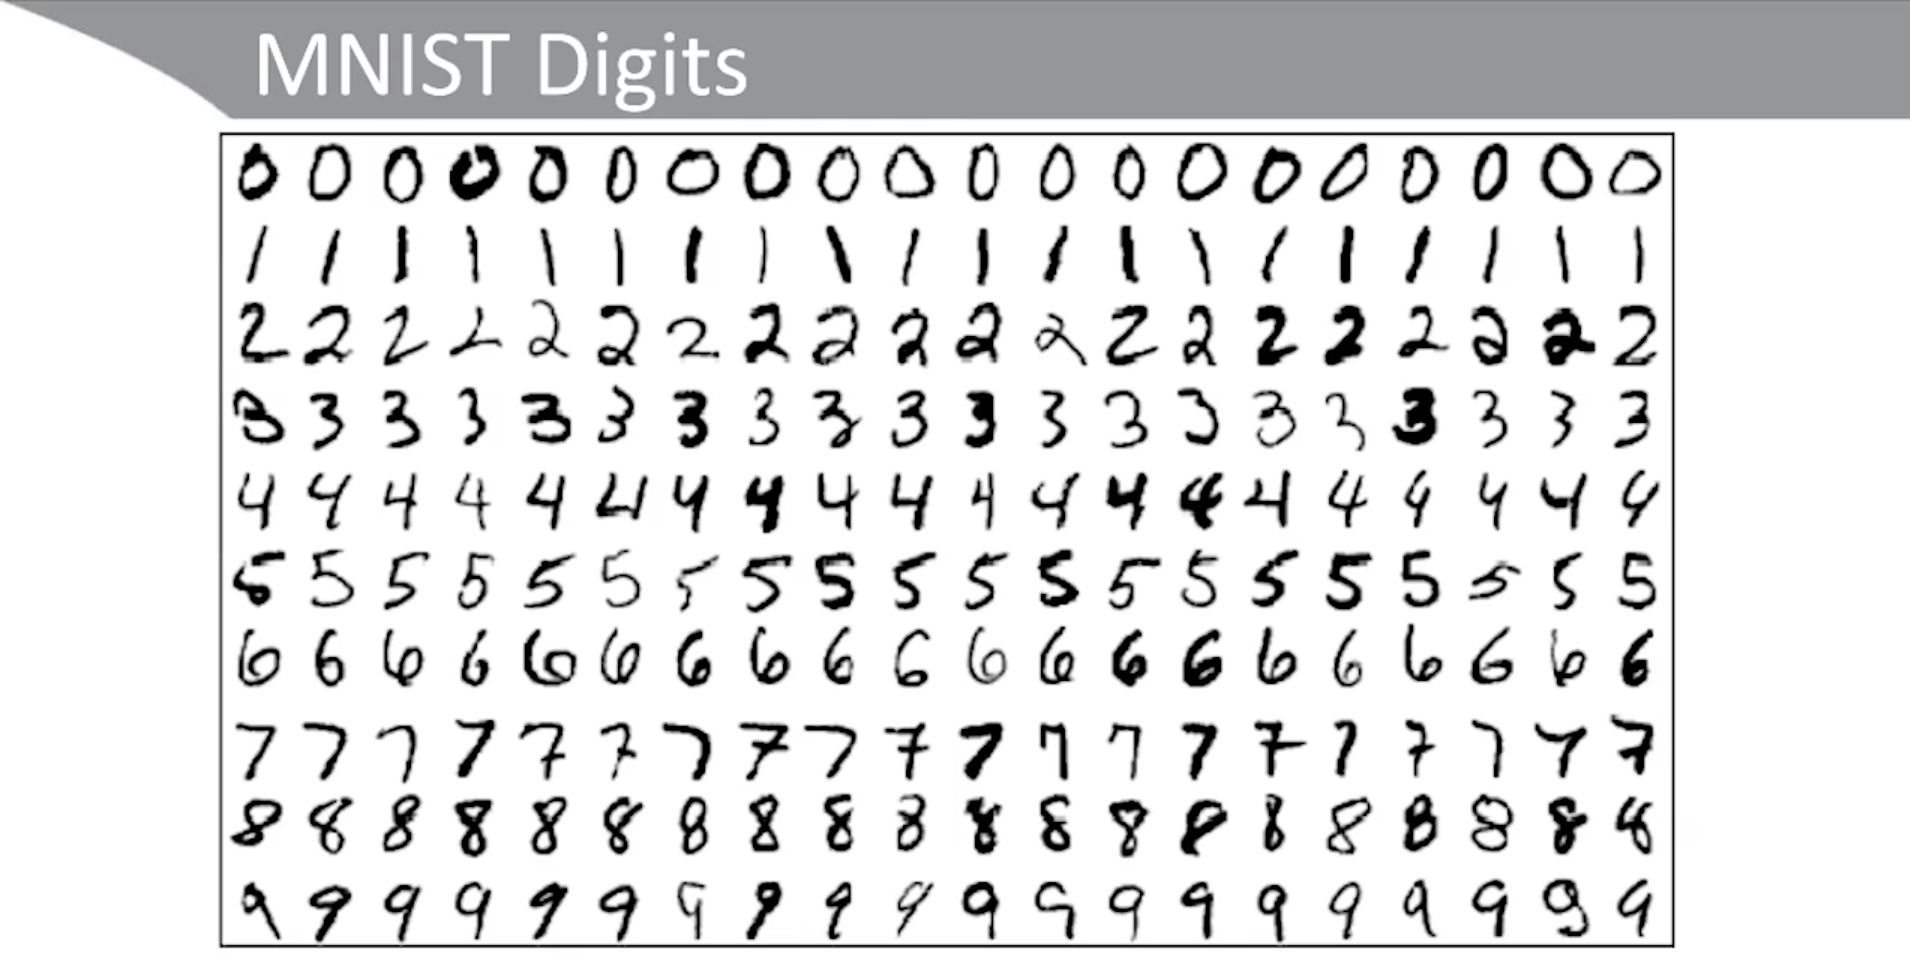 MNIST Digits
0 0 0 0 0 0 0 0 0 0 0 0 0 0 0 0 0 0 0 0
1 1 1 1 1 1 1 1 1 1 1 1 1 1 1 1 1 1 1 1
2 2 2 2 2 2 2 2 2 2 2 2 2 2 2 2 2 2 2 2
3 3 3 3 3 3 3 3 3 3 3 3 3 3 3 3 3 3 3 3
4 4 4 4 4 4 4 4 4 4 4 4 4 4 4 4 4 4 4 4
5 5 5 5 5 5 5 5 5 5 5 5 5 5 5 5 5 5 5 5
6 6 6 6 6 6 6 6 6 6 6 6 6 6 6 6 6 6 6 6
7 7 7 7 7 7 7 7 7 7 7 7 7 7 7 7 7 7 7 7
8 8 8 8 8 8 8 8 8 8 8 8 8 8 8 8 8 8 8 8
9 9 9 9 9 9 9 9 9 9 9 9 9 9 9 9 9 9 9 9